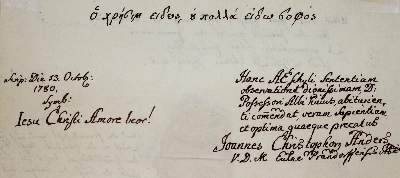 ὁ χρήσιμ' εἰδως, ὐ πολλά εἰδως σοφός
Scrip: Die 13. Octob:
1780.
Symb:
Iesu Christi Amore beor!
Hanc Aeschyli Sententiam
observatione dignissimam D:
Possessori Albi hujus, abiturien,
ti comendat, veram sapientiam
et optima quaeque precatus
Joannes Christophorus
V. D. M.